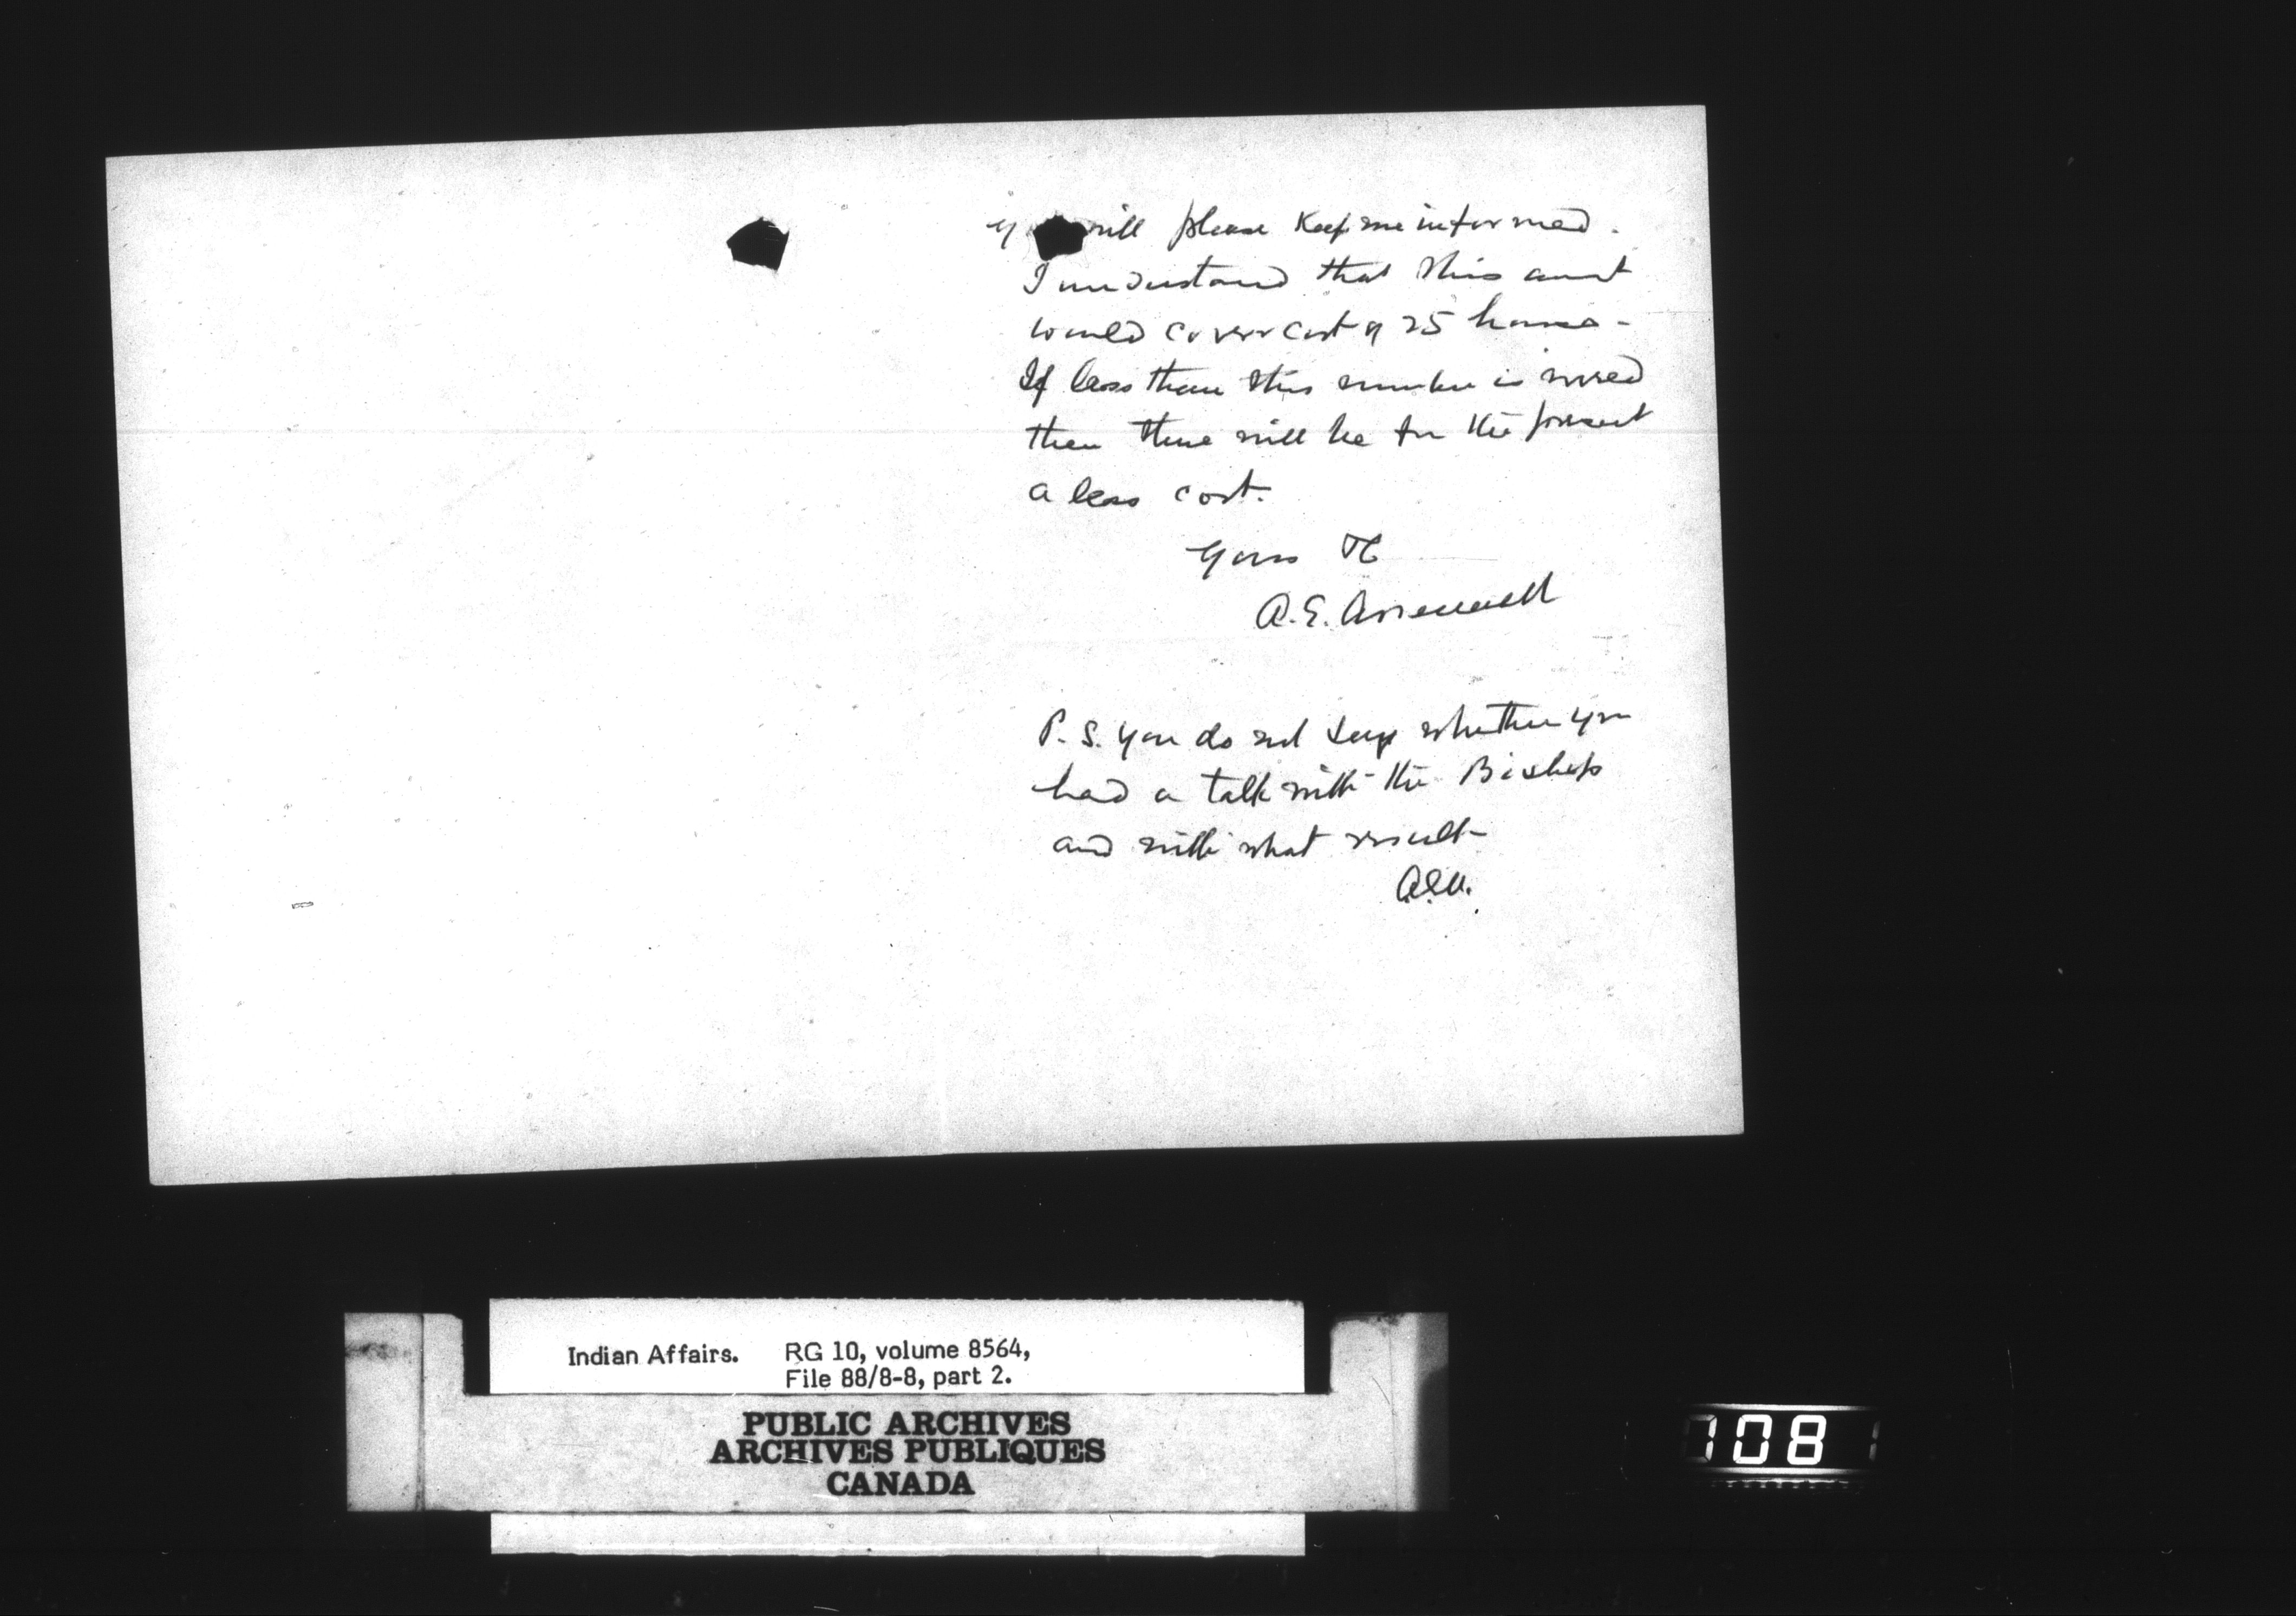 you will please keep me informed.
I understand that this amt
would cover cost of 25 homes -
If less than this number is moved
then there will be for the present
a less cost.
Yours Tr
A. E. Arsenault
P. S. you do not say whether you
had a talk with the Bishop
and with what result
A.E.A.
Indian Affairs. RG 10, volume 8564,
File 88/8-8, part 2.
PUBLIC ARCHIVES
ARCHIVES PUBLIQUES
CANADA
708